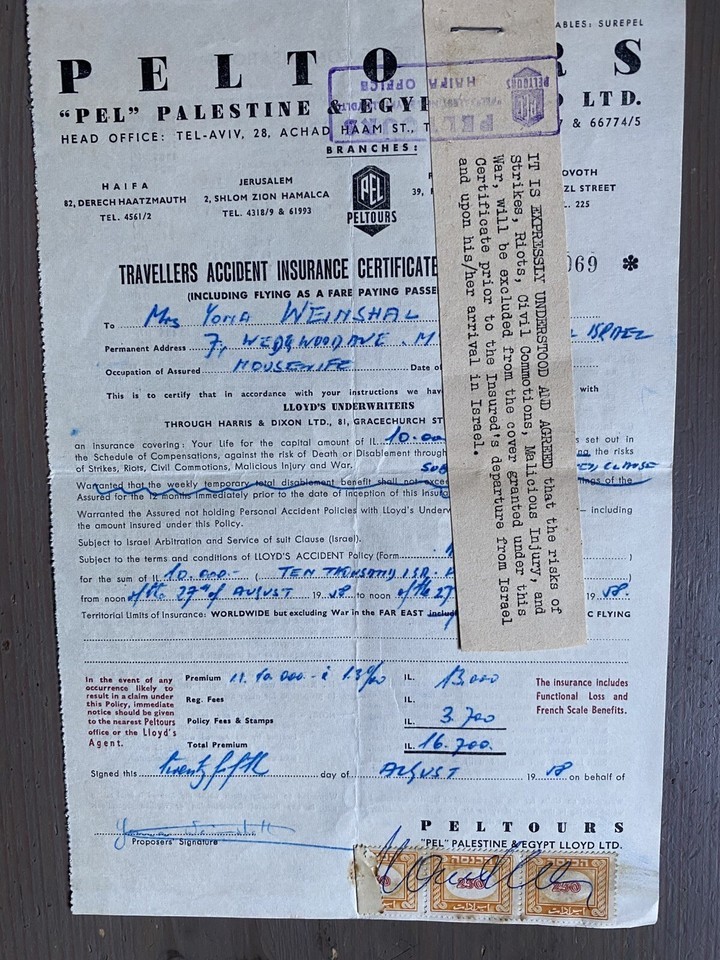 ABLES: SUREPEL
PELTO RS
"PEL" PALESTINE & EGYP LTD.
HEAD OFFICE: TEL-AVIV, 28, ACHAD HAAM ST., T & 66774/5
BRANCHES:
PELTOURS
HAIFA OFFICE
HAIFA
82, DERECH HAATZMAUTH
TEL. 4561/2
JERUSALEM
2, SHLOM ZION HAMALCA
TEL. 4318/9 & 61993
PEL
PELTOURS
R
39,
OVOTH
ZL STREET
. 225
TRAVELLERS ACCIDENT INSURANCE CERTIFICATE 069 *
(INCLUDING FLYING AS A FARE PAYING PASSE
To Mrs YOMA WEINSHAL
Permanent Address 7, WEDGWOOD AVE. ISRAEL
Occupation of Assured HOUSEWIFE Date of
This is to certify that in accordance with your instructions we hav with
LLOYD'S UNDERWRITERS
THROUGH HARRIS & DIXON LTD., 81, GRACECHURCH ST
an Insurance covering: Your Life for the capital amount of IL. 10.00 s set out in
the Schedule of Compensations, against the risk of Death or Disablement through ng the risks
of Strikes, Riots, Civil Commotions, Malicious Injury and War. CLAUSE
Warranted that the weekly temporary total disablement benefit shall not exce nings of the
Assured for the 12 months immediately prior to the date of inception of this Insu
Warranted the Assured not holding Personal Accident Policies with LLoyd's Underw — including
the amount insured under this Policy.
Subject to Israel Arbitration and Service of suit Clause (Israel).
Subject to the terms and conditions of LLOYD'S ACCIDENT Policy (Form )
for the sum of IL. 10.000.- ( TEN THOUSAND ISR. )
from noon of the 27th of AUGUST 19 58 to noon of the 27 19 58.
Territorial Limits of Insurance: WORLDWIDE but excluding War in the FAR EAST includ C FLYING
IT IS EXPRESSLY UNDERSTOOD AND AGREED that the risks of
Strikes, Riots, Civil Commotions, Malicious Injury, and
War, will be excluded from the cover granted under this
Certificate prior to the Insured's departure from Israel
and upon his/her arrival in Israel.
In the event of any
occurrence likely to
result in a claim under
this Policy, immediate
notice should be given
to the nearest Peltours
office or the Lloyd's
Agent.
Premium IL. 13.000
Reg. Fees IL.
Policy Fees & Stamps IL. 3.700
Total Premium IL. 16.700.
The insurance includes
Functional Loss and
French Scale Benefits.
Signed this twenty fifth day of AUGUST 19 58 on behalf of
Proposers' Signature
PELTOURS
"PEL" PALESTINE & EGYPT LLOYD LTD.
הכנסה
250